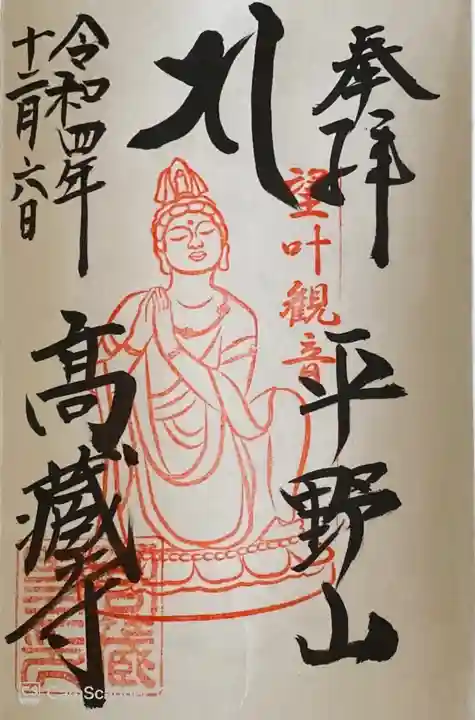 奉拝
平野山
望叶観音
札
高蔵寺
令和四年
十二月六日